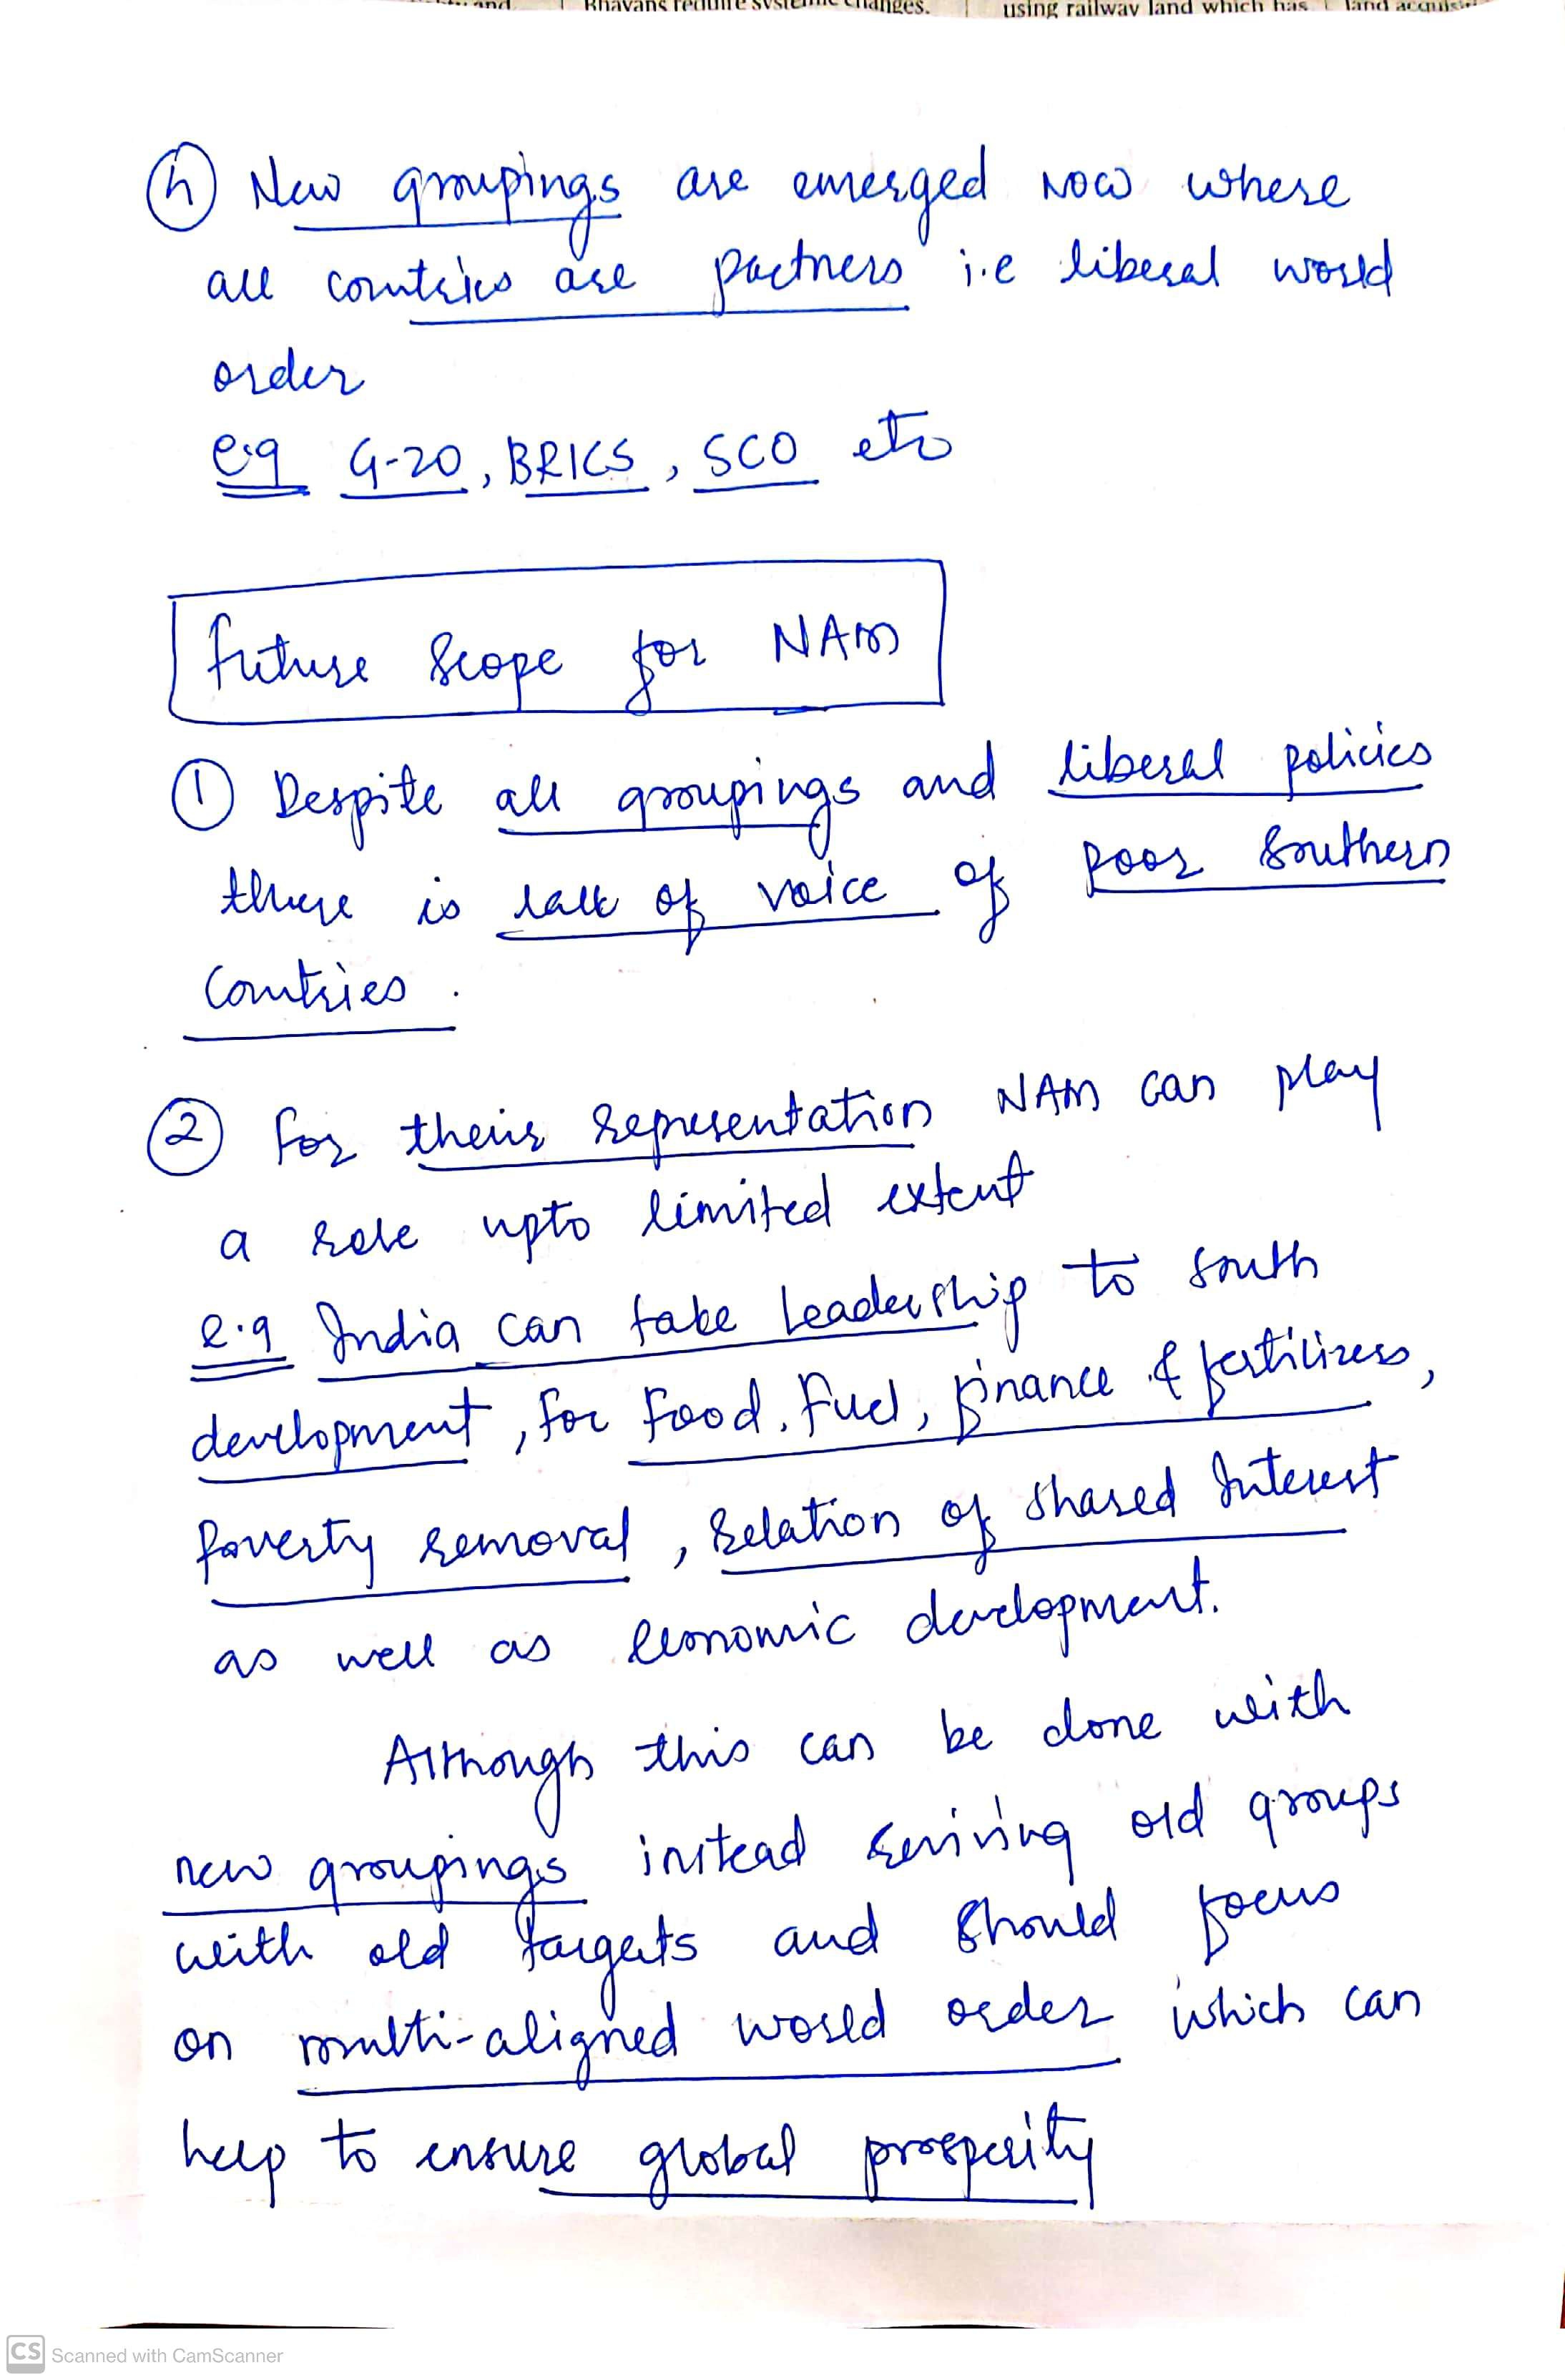 Bhavans require systemic changes.
using railway land which has
(h) New groupings are emerged now where
all countries are partners i.e liberal world
order
e.g G-20, BRICS, SCO etc
future scope for NAM
① Despite all groupings and liberal policies
there is lack of voice of poor southern
countries.
② for their representation NAM can play
a role upto limited extent
e.g India can take leadership to south
development, for food, fuel, finance & fertilizers,
poverty removal, relation of shared Interest
as well as economic development.
Although this can be done with
new groupings instead reviving old groups
with old targets and should focus
on multi-aligned world order which can
help to ensure global prosperity
CS Scanned with CamScanner